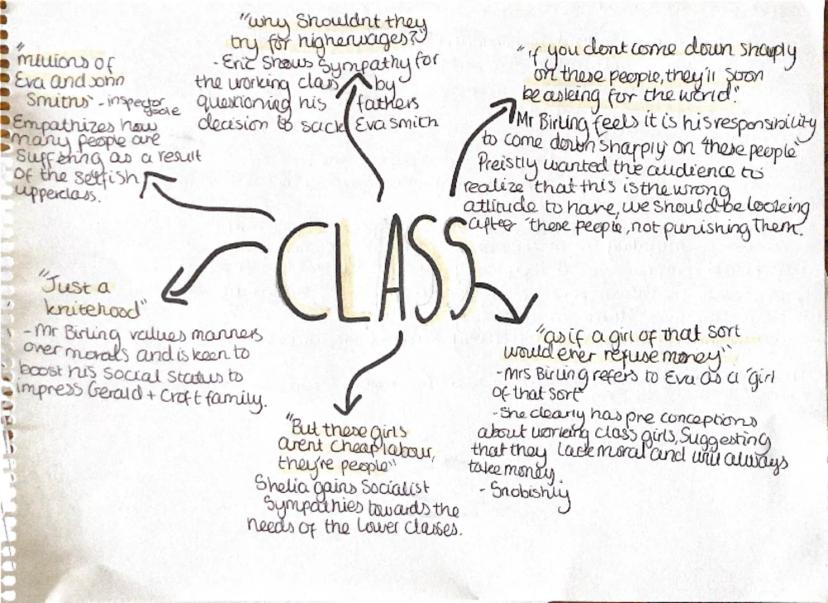 CLASS
"millions of
Eva and John
Smiths" - inspector
goole
Empathizes how
many people are
suffering as a result
of the selfish
upperclass.
"Why Shouldnt they
try for higherwages?"
- Eric Shows Sympathy for
the working class by
questioning his fathers
decision to sack Eva smith
"if you dont come down sharply
on these people, they'll soon
be asking for the world".
Mr Birling feels it is his responsibility
to come down sharply on these people
Preistly wanted the audience to
realize that this is the wrong
attitude to have, we should be looking
after these people, not punishing them.
"Just a
knitehood"
- Mr Birling values manners
over morals and is keen to
boost his Social Status to
impress Gerald + Croft family.
"But these girls
arent cheap labour,
they're people"
Shelia gains Socialist
Sympathies towards the
needs of the lower classes.
"as if a girl of that sort
would ever refuse money"
- Mrs Birling refers to Eva as a 'girl
of that sort'
- She clearly has pre conceptions
about working class girls, Suggesting
that they lack moral and will always
take money.
- Snobishly